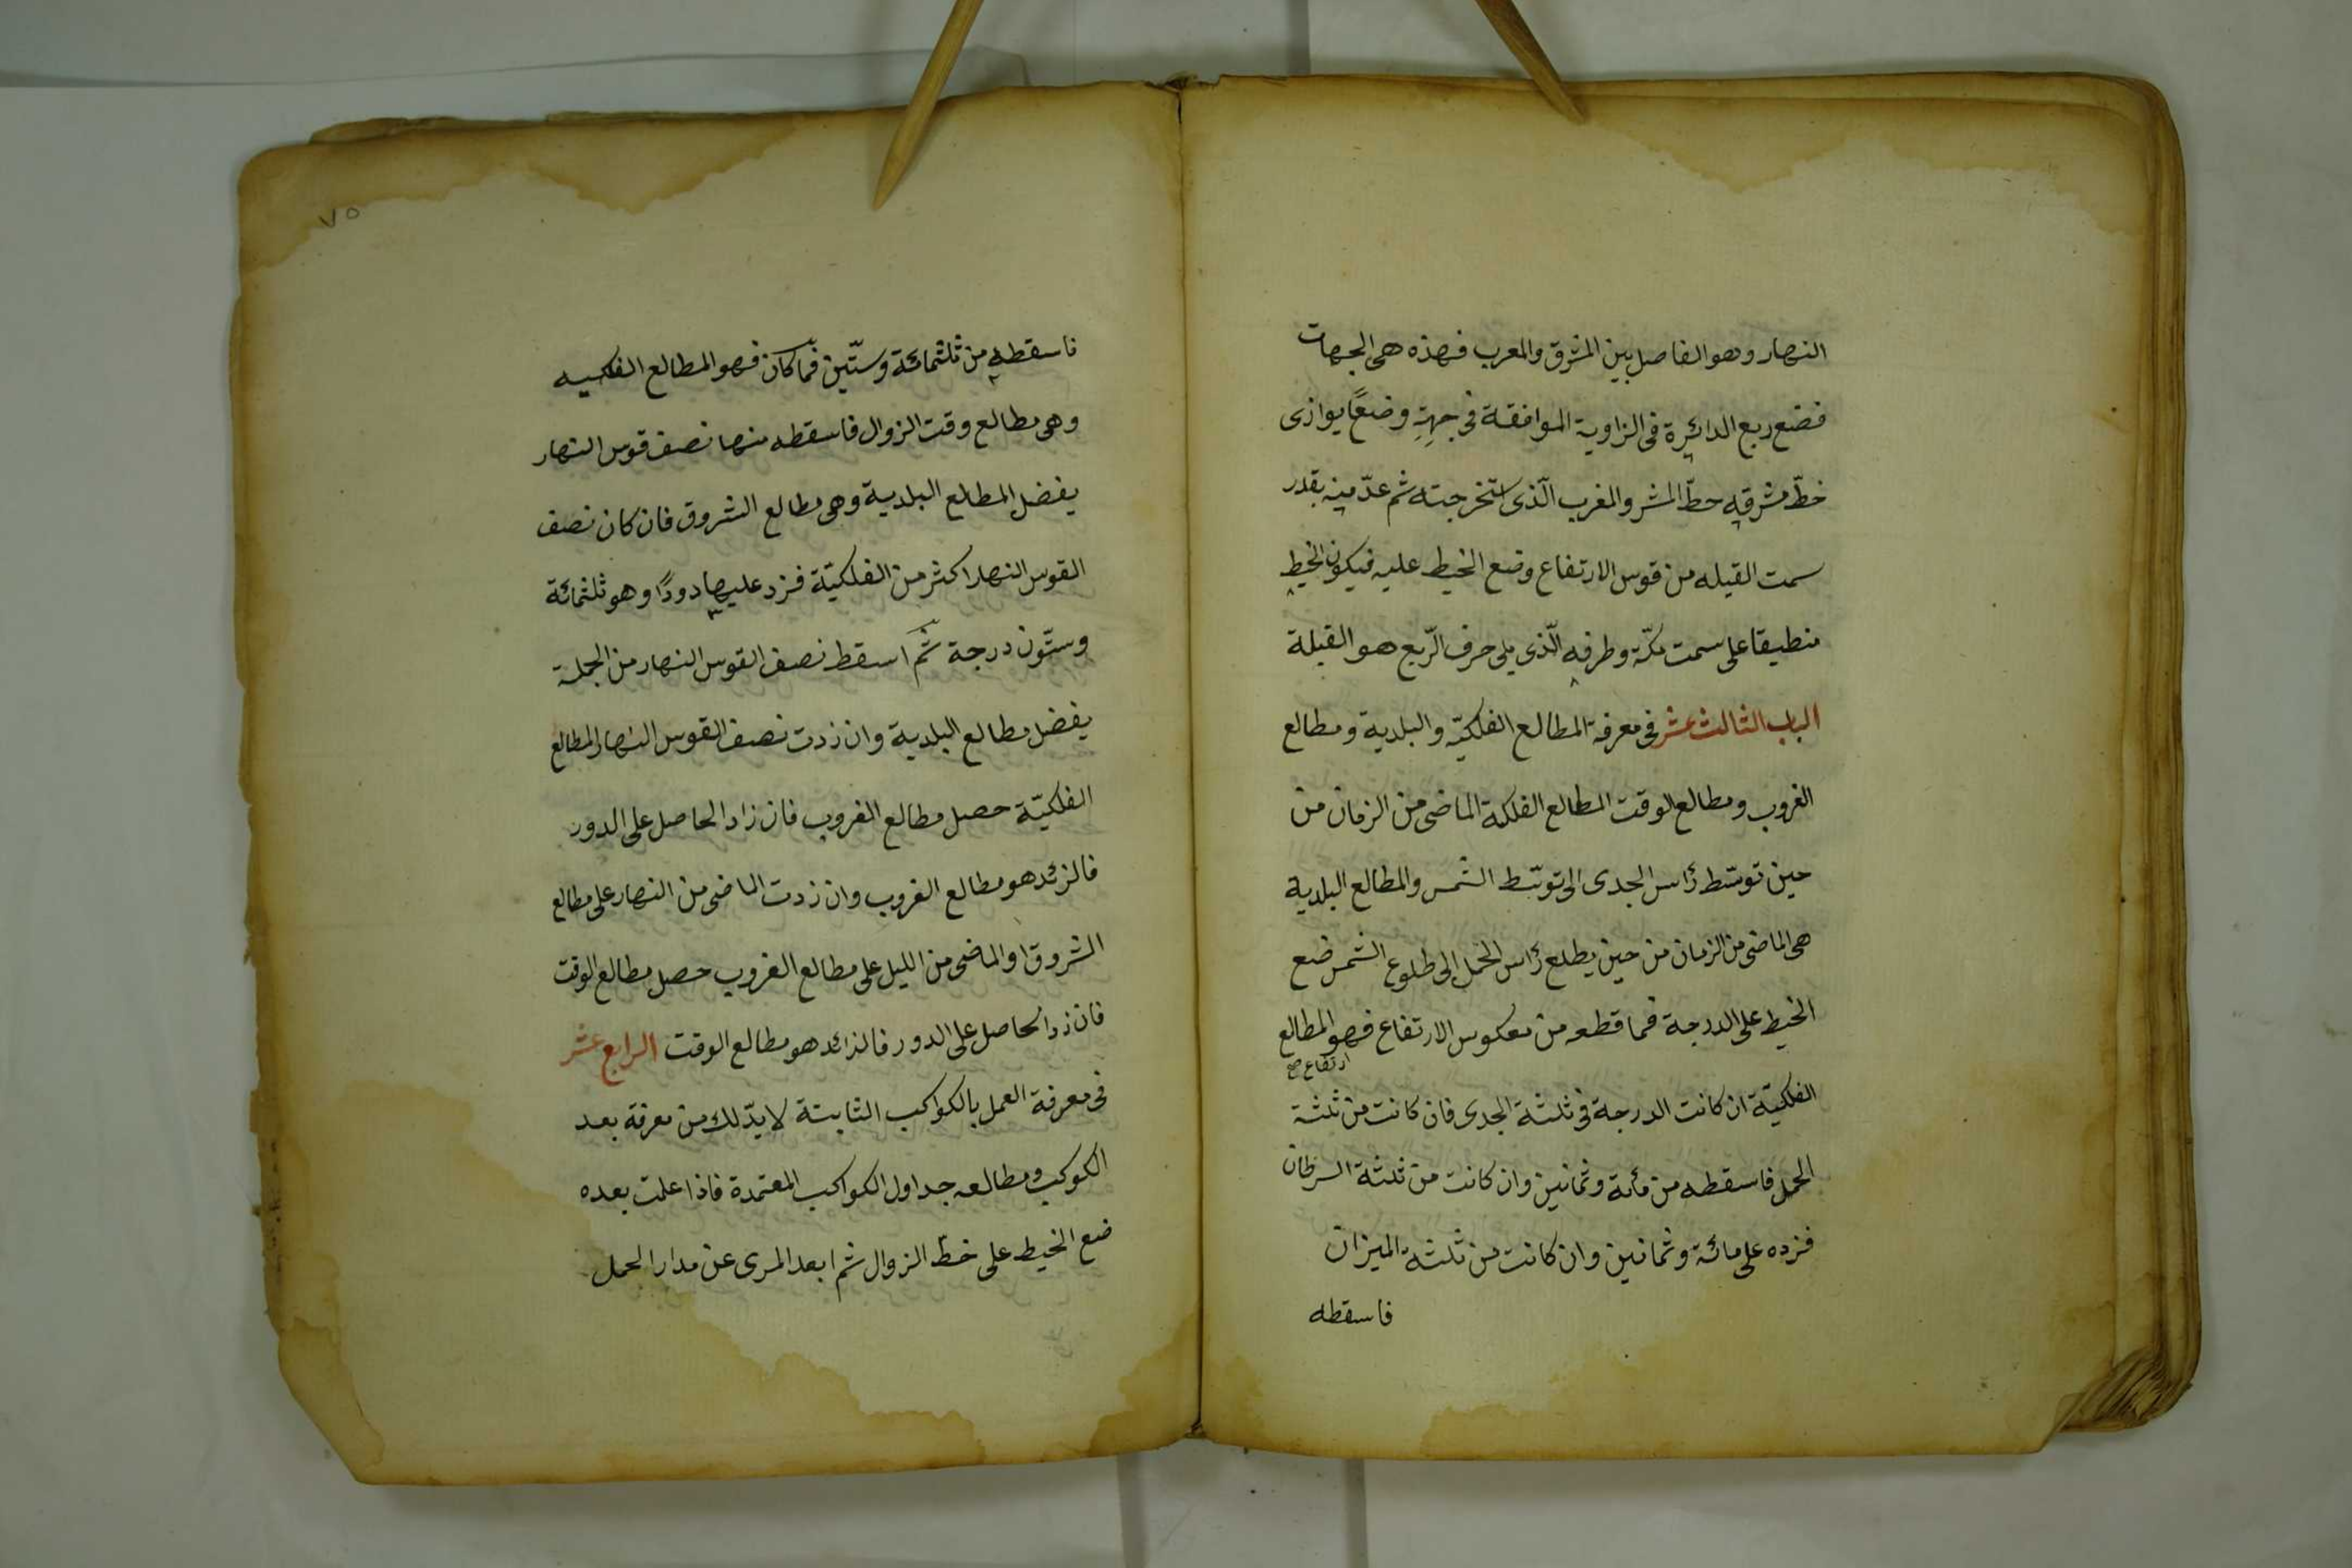 النهار وهو الفاصل بين المشرق والمغرب فهذه هى الجهات
فضع ربع الدائرة فى الزاوية الموافقة فى جهة وضعًا يوازى
خطّ مشرقه خطّ المشر والمغرب الّذى استخرجته ثم عدّ منه بقدر
سمت القبله من قوس الارتفاع وضع الخيط عليه فيكون الخيط
منطبقا على سمت مكّة وطرفه الّذى يلى حرف الرّبع هو القبلة
الباب الثالث عشر فى معرفة المطالع الفلكيّه والبلدية ومطالع
الغروب ومطالع الوقت المطالع الفلكة الماضى من الزمان من
حين توسّط رأس الجدى الى توسّط الشمس والمطالع البلدية
هى الماضى من الزمان من حين يطلع رأس الحمل الى طلوع الشمس ضع
الخيط على الدرجة فما قطعه من معكوس الارتفاع فهو المطالع
ارتفاع صح
الفلكيّة ان كانت الدرجة فى ثلثة الجدى فان كانت من ثلثة
الحمل فاسقطه من مأة وثمانين وان كانت من ثلثة السرطان
فزده على مائة وثمانين وان كانت من ثلثة الميزان
فاسقطه
٧٥
فاسقطه من ثلثمائة وستّين فما كان فهو المطالع الفلكيه
وهى مطالع وقت الزوال فاسقطه منها نصف قوس النهار
يفضل المطالع البلدية وهى مطالع الشروق فان كان نصف
القوس النهار اكثر من الفلكيّة فزد عليها دورًا وهو ثلثمائة
وستّون درجة ثم اسقط نصف القوس النهار من الجملة
يفضل مطالع البلدية وان زدت نصف القوس النهار المطالع
الفلكيّة حصل مطالع الغروب فان زاد الحاصل على الدور
فالزئد هو مطالع الغروب وان زدت الماضى من النهار على مطالع
الشروق او الماضى من الليل على مطالع الغروب حصل مطالع الوقت
فان زد الحاصل على الدور فالزائد هو مطالع الوقت الرابع عشر
فى معرفة العمل بالكواكب الثابتة لابدّ لك من معرفة بعد
الكوكب ومطالعه جداول الكواكب المعتمدة فاذا علمت بعده
ضع الخيط على خط الزوال ثم ابعد المرى عن مدار الحمل